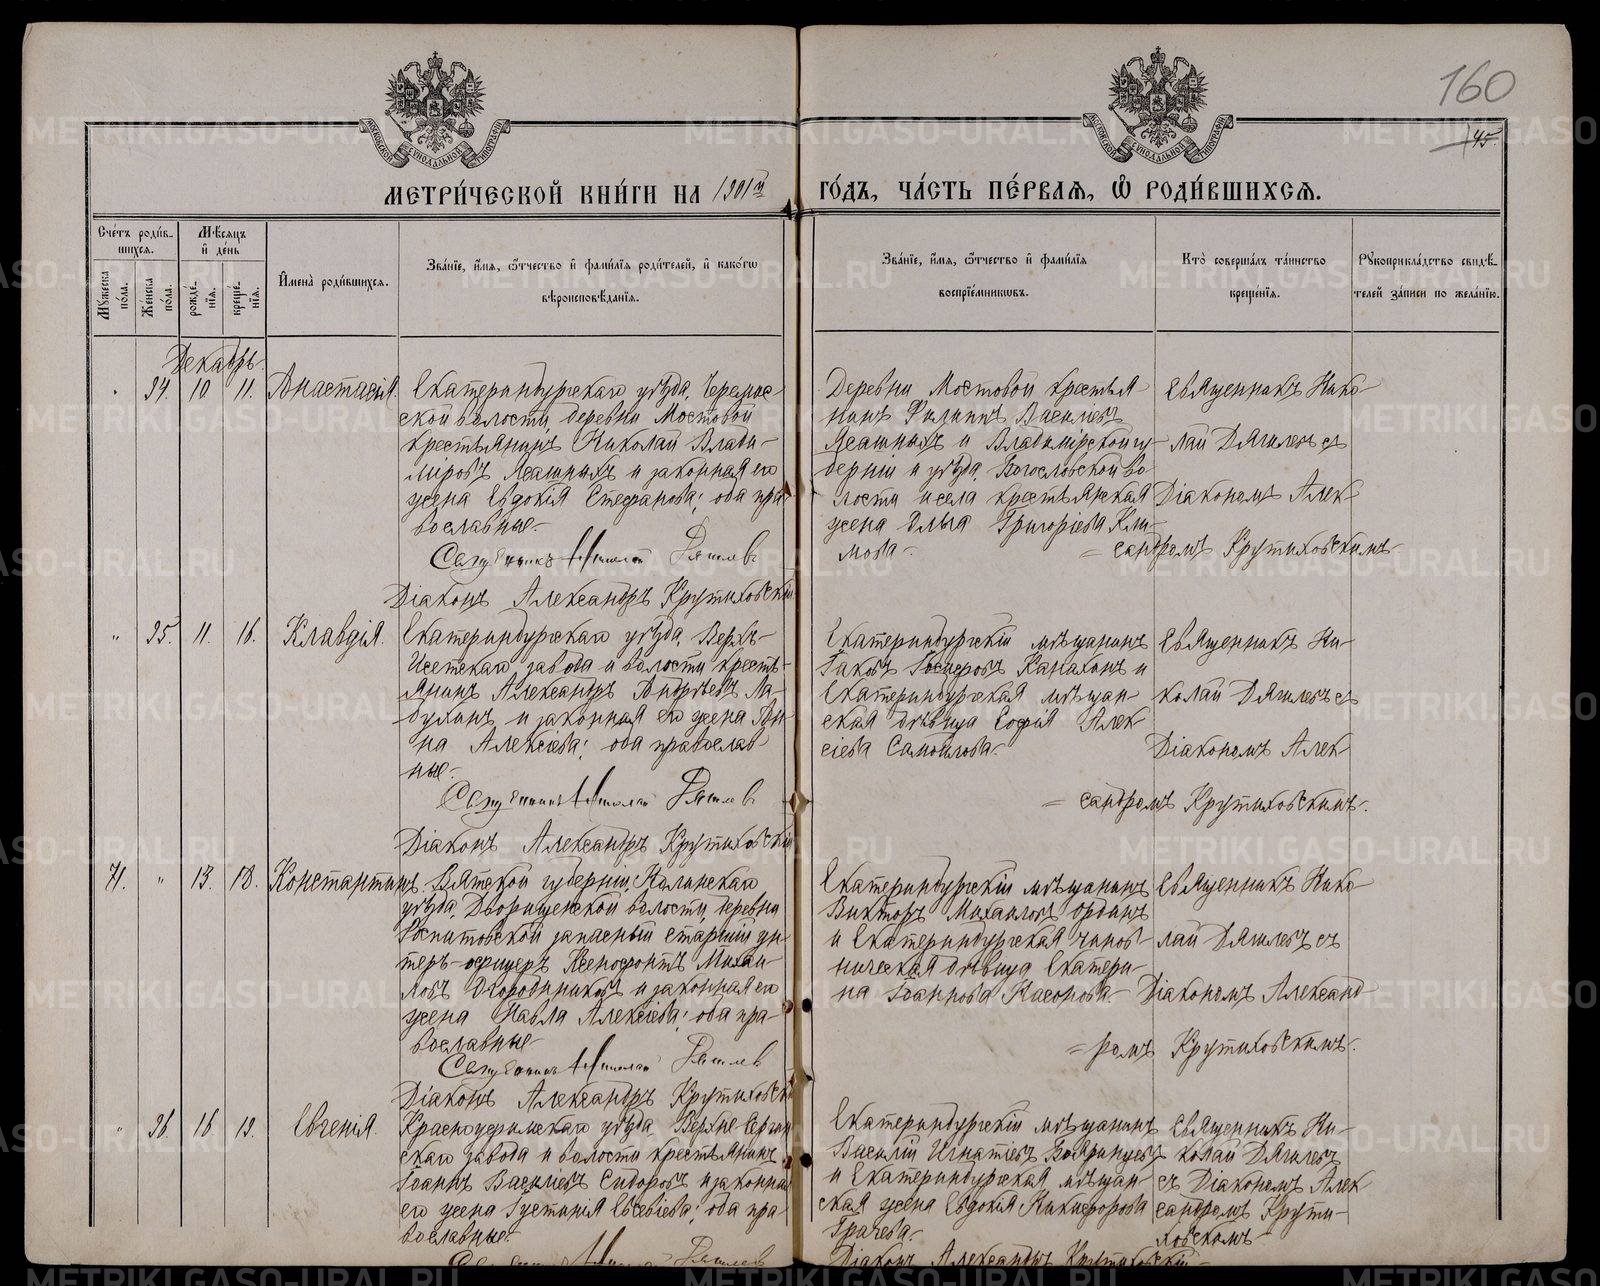 160
145.
МОСКОВСКОЙ СѴНОДАЛЬНОЙ ТИПОГРАФІИ
МОСКОВСКОЙ СѴНОДАЛЬНОЙ ТИПОГРАФІИ
МЕТРИ́ЧЕСКОЙ КНИ́ГИ НА 1901й ГО́ДЪ, ЧА́СТЬ ПЕ́РВАѦ, Ѿ РОДИ́ВШИХСѦ.
Сче́тъ роди́в-
шихсѧ.
Мꙋжеска
по́ла.
Женска
по́ла.
Мѣ́сѧцъ
и҆ де́нь
рожде́-
нїѧ.
креще́-
нїѧ.
И҆мена̀ роди́вшихсѧ.
Зва́нїе, и҆́мѧ, ѻ҆́тчество и҆ фами́лїѧ роди́телей, и҆ како́гѡ
вѣроисповѣ́данїѧ.
Зва́нїе, и҆́мѧ, ѻ҆́тчество и҆ фами́лїѧ
воспрїе́мникѡвъ.
Кто̀ соверша́лъ та́инство
креще́нїѧ.
Рꙋкоприкла́дство свидѣ́-
телей за́писи по жела́нїю.
Декабрь.
" 94. 10 11. Анастасія.
Екатеринбургскаго уѣзда,
ской волости, деревни Мостовой
крестьянинъ Николай Влади-
міровъ Ясашныхъ и законная его
жена Евдокія Стефанова; оба пра-
вославные.-
Священникъ Николай Дягилевъ
Діаконъ Александръ Крутиховскій
Деревни Мостовой крестья
нинъ Филиппъ Васильевъ
Ясашныхъ и Владимірской гу-
берніи и уѣзда, Богословской во
лости и села крестьянская
жена Ольга Григоріева Кли-
мова.-
Священникъ Нико-
лай Дягилевъ съ
Діакономъ Алек-
= сандромъ Крутиховскимъ.-
" 95. 11. 16. Клавдія.
Екатеринбургскаго уѣзда, Верхъ-
Исетскаго завода и волости кресть-
янинъ Александръ Андреевъ Ла-
бухинъ и законная его жена Ан-
на Алексіева; оба православ
ные.-
Священникъ Николай Дягилевъ
Діаконъ Александръ Крутиховскій
Екатеринбургскій мѣщанинъ
Іаковъ
и
Екатеринбургская мѣщан-
ская дѣвица Софія Алек-
сіева Самойлова.-
Священникъ Ни-
колай Дягилевъ съ
Діакономъ Алек-
= сандромъ Крутиховскимъ.-
71. " 13. 18. Константинъ.
Вятской губерніи,
уѣзда, Дворищенской волости, деревни
запасный старшій ун-
теръ-офицеръ Ксенофонтъ Михаи-
ловъ Огородниковъ и законная его
жена Павла Алексіева; оба пра-
вославные.-
Священникъ Николай Дягилевъ
Діаконъ Александръ Крутиховскій
Екатеринбургскій мѣщанинъ
Викторъ Михаиловъ
и Екатеринбургская чинов-
ническая дѣвица Екатери-
на Іоаннова
Священникъ Нико-
лай Дягилевъ съ
Діакономъ Александ-
= ромъ Крутиховскимъ.-
" 96. 16. 19. Евгенія.
Красноуфимскаго уѣзда Верхне-Сергин
скаго завода и волости крестьянинъ
Іоаннъ Васильевъ Сидоровъ и законная
его жена Іустинія Евсевіева; оба пра
вославные.-
Екатеринбургскій мѣщанинъ
Василій Игнатіевъ
и Екатеринбургская мѣщан-
ская жена Евдокія Никифорова
Грачева.-
Священникъ Ни-
колай Дягилевъ
съ Діакономъ Алек
сандромъ Крути-
ховскимъ
Священникъ Николай Дягилевъ
Діаконъ Александръ Крутиховскій
METRIKI.GASO-URAL.RU